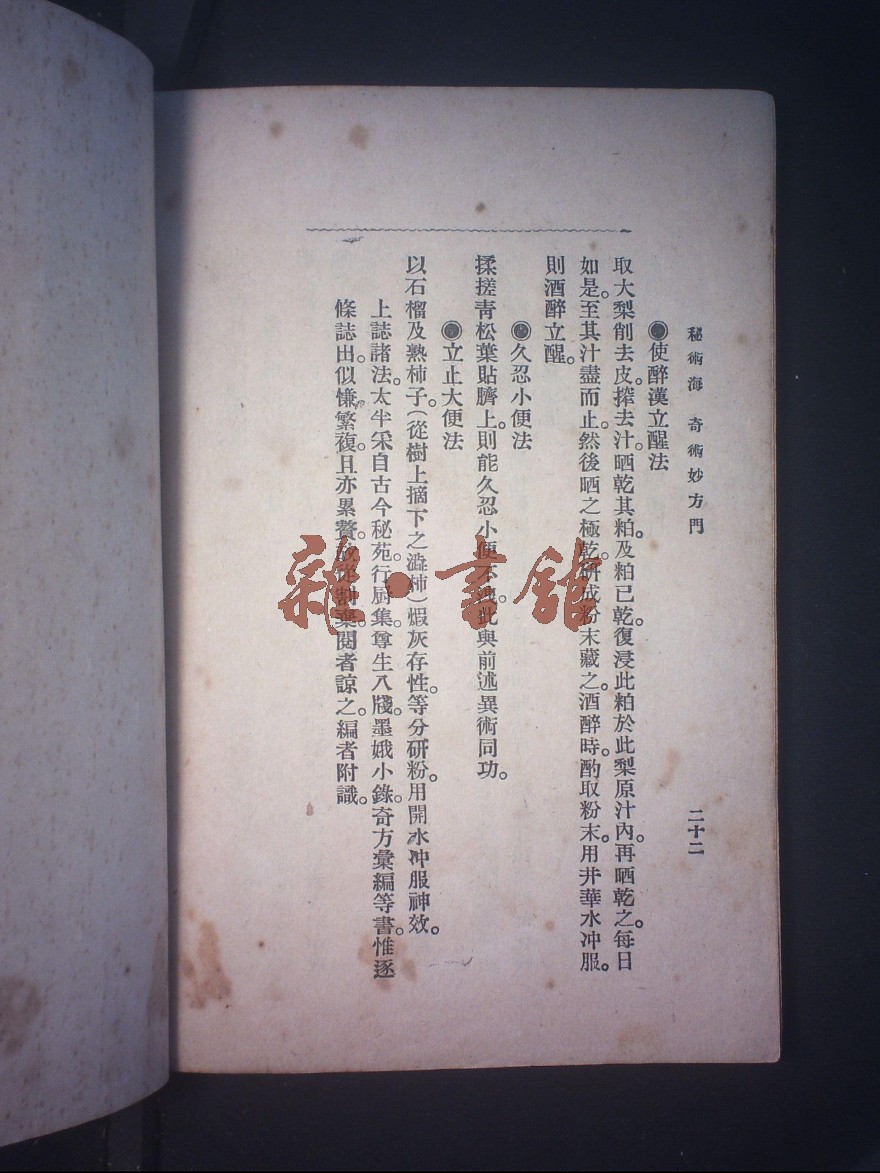 秘術海 奇術妙方門
二十二
◉使醉漢立醒法
取大梨削去皮。搾去汁。晒乾其粕。及粕已乾。復浸此粕於此梨原汁內。再晒乾之。每日
如是。至其汁盡而止。然後晒之極乾。研成粉末藏之。酒醉時。酌取粉末。用井華水冲服。
則酒醉立醒。
◉久忍小便法
揉搓青松葉貼臍上。則能久忍小便不洩。此與前述異術同功。
◉立止大便法
以石榴及熟柿子。(從樹上摘下之澁柿)煆灰存性。等分研粉。用開水冲服神效。
上誌諸法。太半采自古今秘苑。行厨集。尊生八牋。墨娥小錄。奇方彙編等書。惟逐
條誌出。似慊繁複。且亦累贅。故從割棄。閱者諒之。編者附識。
雜·書館